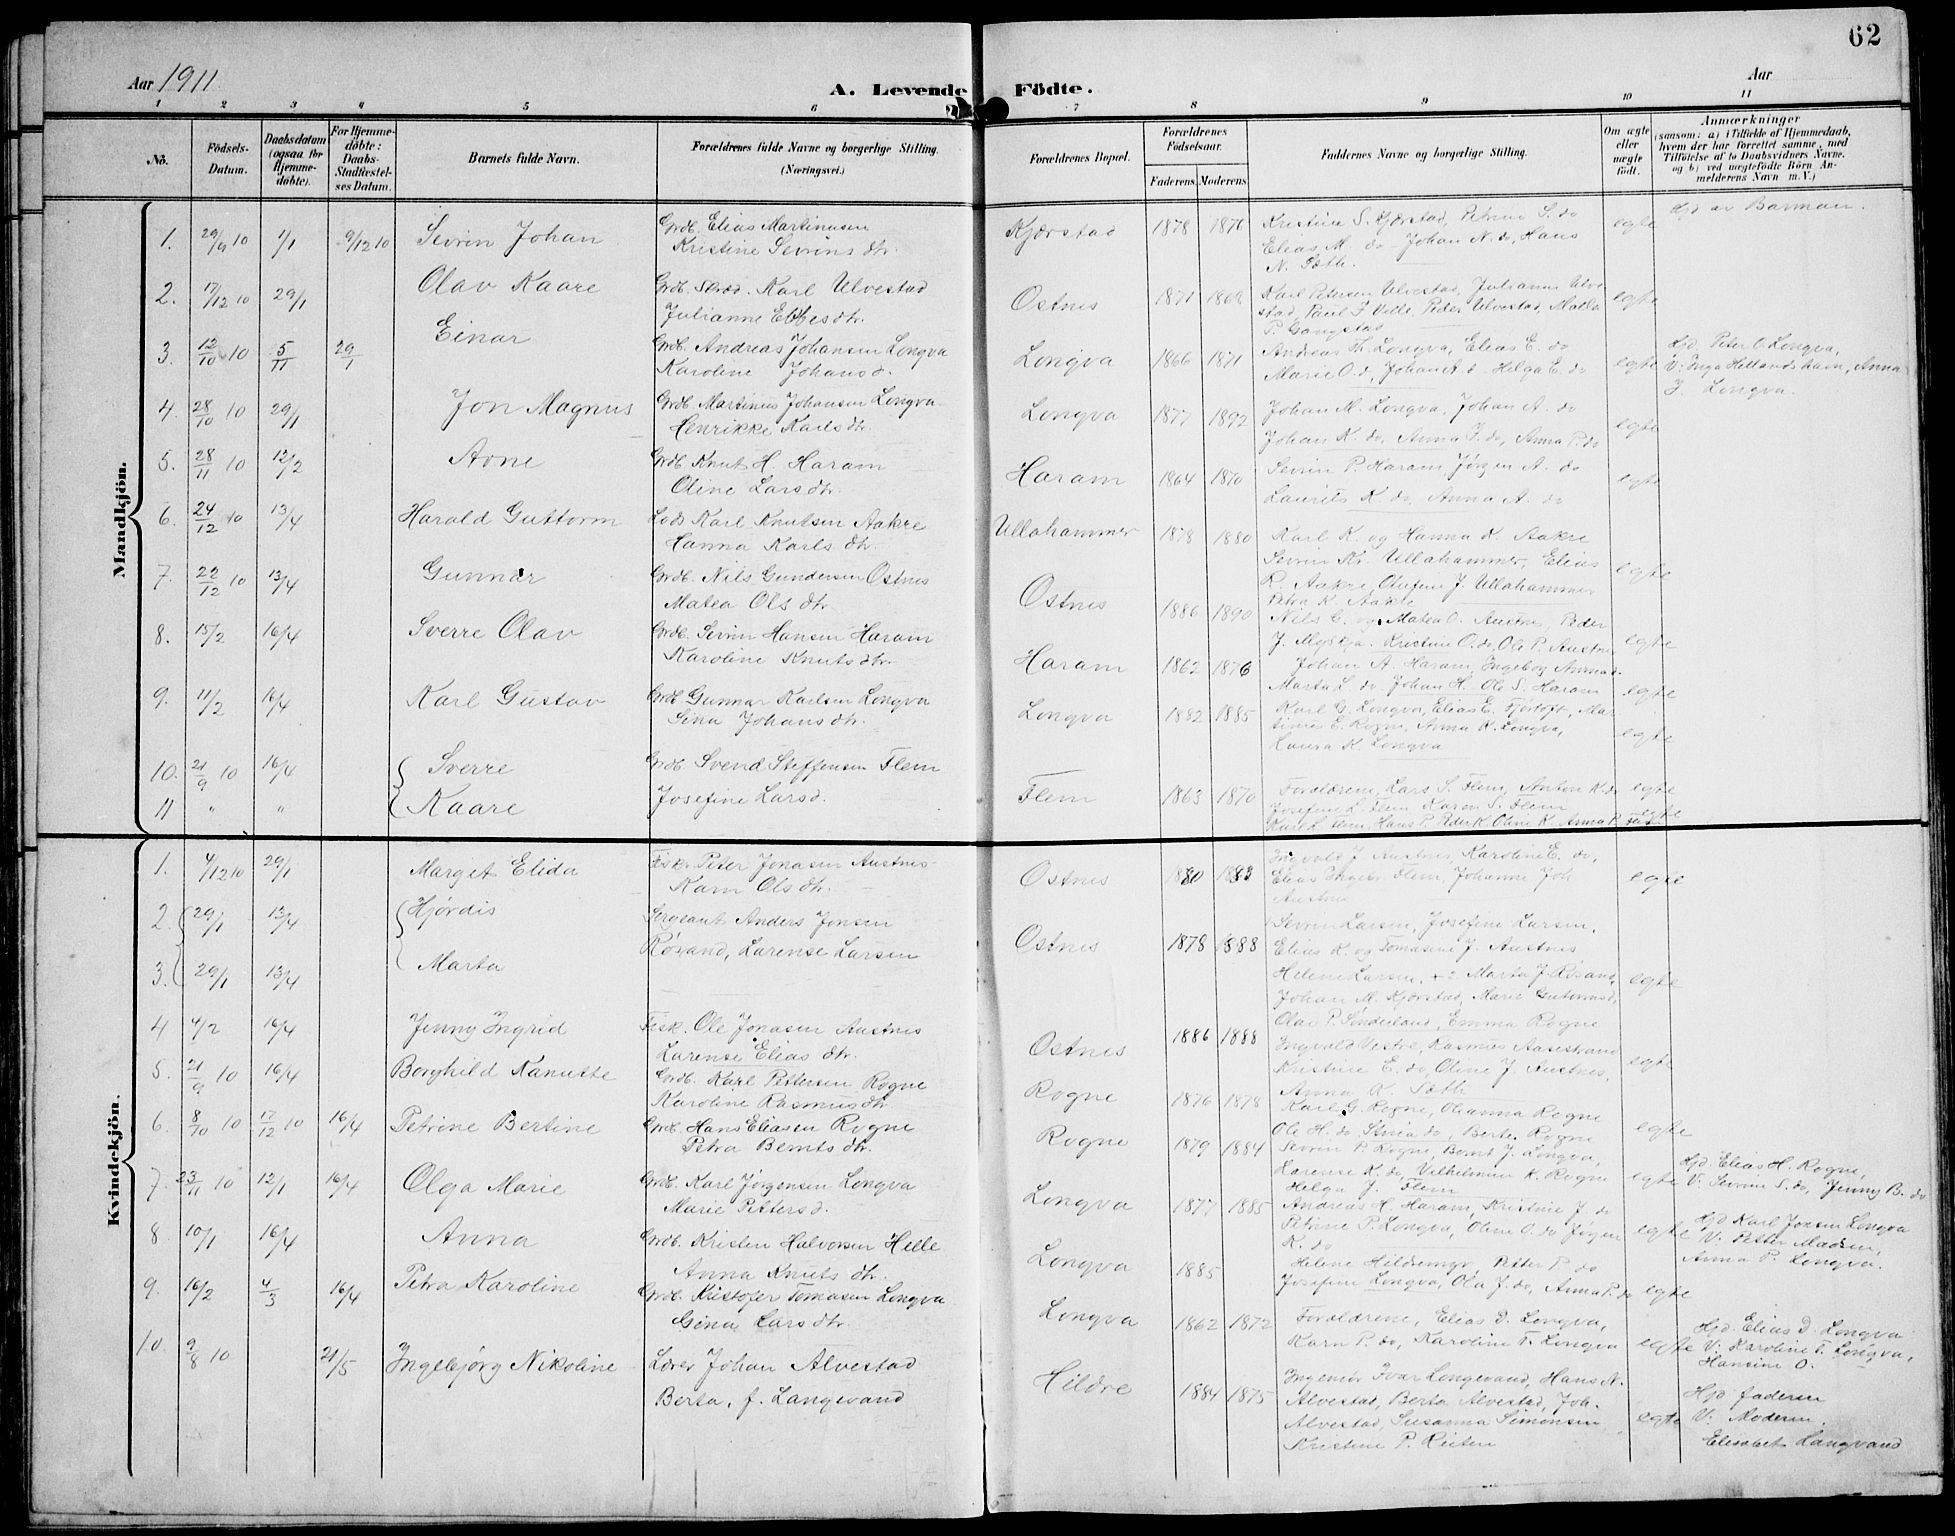 62
Aar 1911
A. Levende Födte.
Aar
1 2 3 4 5 6 7 8 9 10 11
No.
Födsels-Datum.
Daabsdatum (ogsaa for Hjemme-döbte).
For Hjemme-döbte: Daabs-Stadfæstel-ses Datum.
Barnets fulde Navn.
Forældrenes fulde Navne og borgerlige Stilling.
(Næringsvei.)
Forældrenes Bopæl.
Forældrenes Födselsaar.
Faderens. Moderens.
Faddernes Navne og borgerlige Stilling.
Om ægte eller uægte födt.
Anmærkninger
(saasom: a) i Tilfælde af Hjemmedaab, hvem der har forrettet samme, med Tilföielse af to Daabsvidners Navne, og b) ved uægtefödte Börn An-melderens Navn m. V.)
Mandkjön.
1. 29/9 10 1/1 9/12 10 Sevrin Johan Grdb. Elias Martinusen Kjærstad 1878 1876 Kristine S. Kjærstad, Petrine S. do egte Hjd av Barman.
Kristine Sevrins dtr. Elias M. do Johan N. do, Hans
N. Sæth.
2. 17/12 10 29/1 Olav Kaare Grdb. Skræd. Karl Ulvestad Ostnes 1871 1868 Karl Petersen Ulvestad, Julianne Ulve egte
Julianne Ebbesdtr. stad, Paul J Ville, Peder Ulvestad, Matla
P. Gangstad
3. 12/10 10 5/11 29/1 Einar Grdb. Andreas Johansen Longva Longva 1866 1871 Andreas Th. Longva, Elias E. do egte Hjd. Peter O Longva,
Karoline Johansd. Marie O. do, Johan A. d Helga E. do V: Inga Hellandshavn, Anna
J. Longva.
4. 28/10 10 29/1 Jon Magnus Grdb. Martinus Johansen Longva Longva 1877 1892 Johan M. Longva, Johan A. do egte
Henrikke Karlsdtr. Johan K. do, Anna J. do, Anna P. do
5. 28/11 10 12/2 Arne Grdb. Knut H. Haram Haram 1864 1870 Sevrin P. Haram, Jørgen A. do egte
Oline Larsdtr. Laurits K do, Anna A. do
6. 24/12 10 13/4 Harald Guttorm Lods Karl Knutsen Aakre Ullahammer 1878 1880 Karl K. og Hanna K. Aakre
Hanna Karls dtr. Sevrin Kr. Ullahammer, Elias egte
R. Aakre, Olufine J. Ullahammer
Petra K. Aakre
7. 22/12 10 13/4 Gunnar Grdb. Nils Gundersen Ostnes Ostnes 1886 1890 Nils G. og Matea O. Austnes, Peder
Matea Ols dtr. J. Myskja. Kristine O. do, Ole P. Austnes egte
8. 15/2 16/4 Sverre Olav Grdb. Sevrin Hansen Haram Haram 1862 1876 Johan A. Haram, Ingeborg Anna d.
Karoline Knutsdtr. Marta L. do Johan H. Ole S. Haram egte
9. 11/2 16/4 Karl Gustav Grdb Gunnar Karlsen Longva Longva 1882 1885 Karl G. Longva, Elias E. Fjørtoft, Mar
Sina Johansdtr. tinus E. Rogne, Anna K. Longva, egte
Laura K. Longva
10. 21/9 10 16/4 Sverre Grdb. Svend Steffensen Flem Flem 1863 1870 Forældrene, Lars S. Flem, Anton K. do egte
11 " " Kaare Josefine Larsd. Josefine L. Flem Karen S. Flem egte
Karl L Flem, Hans P. Peder K. Oline K. Anna P. Flem
Kvindekjön.
1. 4/12 10 29/1 Margit Elida Fisk. Peter Jonasen Austnes Ostnes 1880 1883 Ingvald J Austnes, Karoline E. do, egte
Karn Olsdtr. Elias Ingebr Flem, Johanne Joh
Austnes
2 29/1 13/4 Hjørdis Sergeant Anders Jonsen Ostnes 1878 1888 Sevrin Larsen, Josefine Larsen,
Røsand, Larense Larsen Elias K. og Tomasine J. Austnes
3. 29/1 13/4 Marta Helene Larsen, +2 Marta J. Røsand, egte
Johan M. Kjærstad, Marie Gutormsd.
4 4/2 16/4 Jenny Ingrid Fisk. Ole Jonasen Austnes Ostnes 1886 1888 Olav P. Sønderland, Emma Rogne
Larense Elias dtr. Ingvald Vestre, Rasmus Aasestrand egte
Kristine E. do, Oline J. Austnes,
5. 21/9 10 16/4 Borghild Nanutte Grdb. Karl Pettersen Rogne Rogne 1876 1878 Anna K. Sæth
Karoline Rasmusdtr Karl G. Rogne, Olianna Rogne
Ole H. do Stina do, Berte Rogne egte
6. 8/10 10 17/12 10 16/4 Petrine Bertine Grdb. Hans Eliasen Rogne Rogne 1879 1884 Sevrin P. Rogne, Bernt J. Longva,
Petra Bernts dtr. Larense K. do, Vilhelmine K. Rogne egte Hjd. Elias H. Rogne,
Helga J. Flem V. Sevrine S. do, Jenny B. do
7. 23/11 10 12/1 16/4 Olga Marie Grdb. Karl Jørgensen Longva Longva 1877 1885 Andreas H. Haram, Kristine J. do
Marie Petters d. Petrine P. Longva, Oline O. do Jørgen egte Hjd Karl Jonsen Longva
K. do V: Petter Madsen,
Anna P. Longva.
8. 10/1 16/4 Anna Grdb. Kristen Halvorsen Helle Longva 1885 Helene Hildremyr, Petter P. do
Anna Knuts dtr. Josefine Longva, Ola J. do, Anna P. do egte
9. 16/2 4/3 16/4 Petra Karoline Grdb. Kristofer Tomasen Longva Longva 1862 1872 Forældrene, Elias D. Longva,
Gina Larsdtr. Karn P. do, Karoline T. Longva egte Hjd. Elias D. Longva
V: Karoline T. Longva,
Hansine O.
10. 9/8 10 21/5 Ingebjørg Nikoline Lærer Johan Alvestad Hildre 1884 1875 Ingeniør Ivar Longevand, Hans N.
Berta, f. Langevand Alvestad, Berta Alvestad, Joh. Hjd faderen
Alvestad, Susanna Simonsen, egte V: Moderen.
Kristine P. Reiten Elisabet Langvand